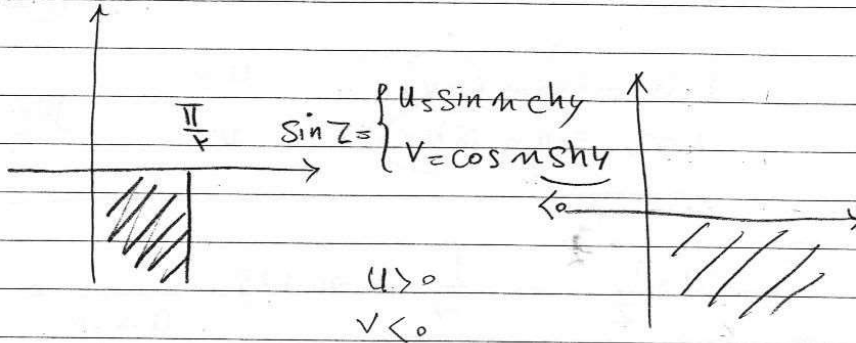 π/۲
sin z = { u = sin x ch y
v = cos x sh y
<0
u > 0
v < 0